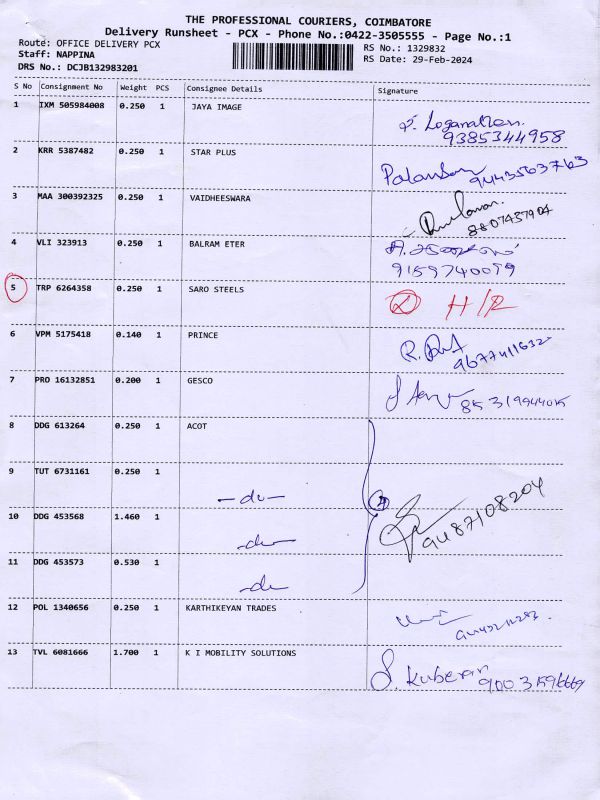 THE PROFESSIONAL COURIERS, COIMBATORE
Delivery Runsheet - PCX - Phone No.:0422-3505555 - Page No.:1
Route: OFFICE DELIVERY PCX
RS No.: 1329832
Staff: NAPPINA
RS Date: 29-Feb-2024
DRS No.: DCJB132983201
S No Consignment No Weight PCS Consignee Details Signature
1 IXM 505984008 0.250 1 JAYA IMAGE
Loganathan
9385344958
2 KRR 5387482 0.250 1 STAR PLUS
9443563763
3 MAA 300392325 0.250 1 VAIDHEESWARA
8807437904
4 VLI 323913 0.250 1 BALRAM ETER
9159740099
5 TRP 6264358 0.250 1 SARO STEELS
6 VPM 5175418 0.140 1 PRINCE
9677411632
7 PRO 16132851 0.200 1 GESCO
8 DDG 613264 0.250 1 ACOT
9 TUT 6731161 0.250 1 -do-
10 DDG 453568 1.460 1 -do-
9487108204
11 DDG 453573 0.530 1 -do-
12 POL 1340656 0.250 1 KARTHIKEYAN TRADES
13 TVL 6081666 1.700 1 K I MOBILITY SOLUTIONS
S. Kuberan